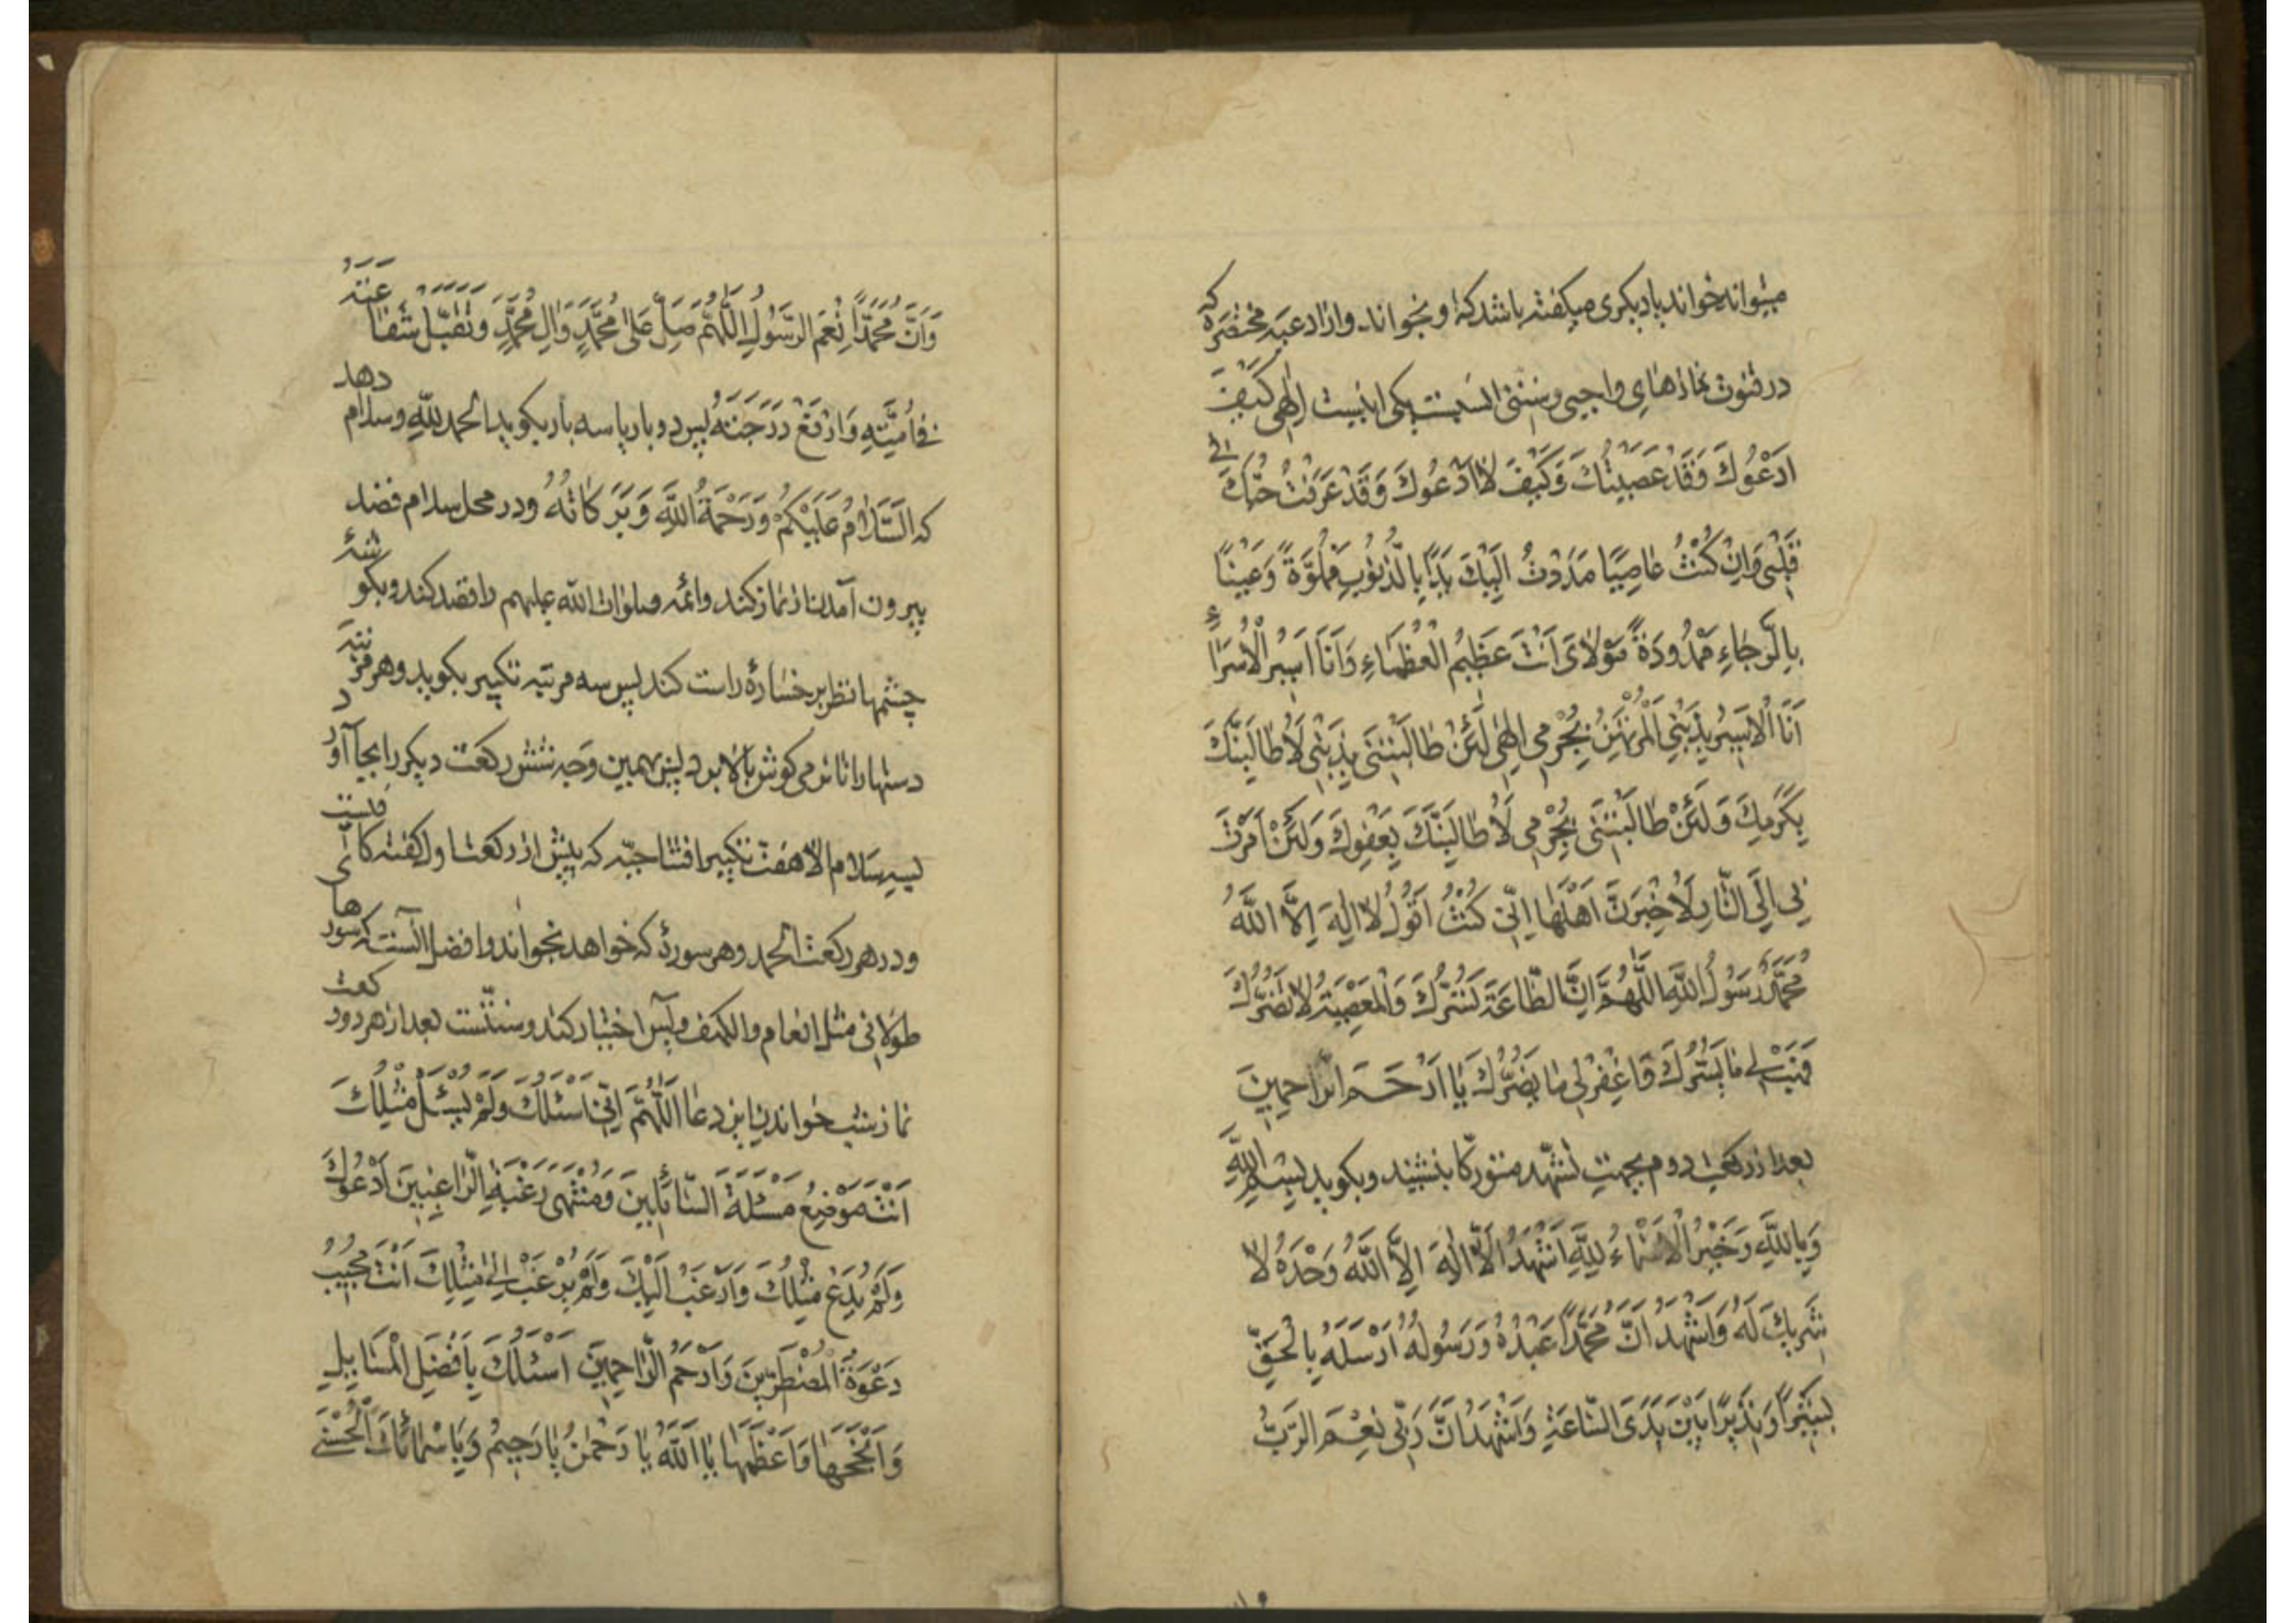 میتواند خواند یا دیگری میگفته باشد که او بخواند و از ادعیه مختصره که
در قنوت نمازهای واجبی و سنتی یکی اینست اِلٰهی كَيْفَ
اَدْعُوكَ وَقَدْ عَصَيْتُكَ وَكَيْفَ لَا اَدْعُوكَ وَقَدْ عَرَفْتُ حُبَّكَ فی
قَلْبی وَاِنْ كُنْتُ عَاصِيًا مَدَدْتُ اِلَيْكَ يَدًا بِالذُّنُوبِ مَمْلُوَّةً وَعَيْنًا
بِالرَّجَاءِ مَمْدُودَةً مَوْلَایَ اَنْتَ عَظِيمُ الْعُظَمَاءِ وَاَنَا اَسِيرُ الْاُسَرَاءِ
اَنَا الْاَسِيرُ بِذَنْبِی الْمُرْتَهَنُ بِجُرْمِی اِلٰهِی لَئِنْ طَالَبْتَنِی بِذَنْبِی لَاُطَالِبَنَّكَ
بِكَرَمِكَ وَلَئِنْ طَالَبْتَنِی بِجُرْمِی لَاُطَالِبَنَّكَ بِعَفْوِكَ وَلَئِنْ اَمَرْتَ
بِی اِلَی النَّارِ لَاُخْبِرَنَّ اَهْلَهَا اِنِّی كُنْتُ اَقُولُ لَا اِلٰهَ اِلَّا اللّٰهُ
مُحَمَّدٌ رَسُولُ اللّٰهِ اَللّٰهُمَّ اِنَّ الطَّاعَةَ تَسُرُّكَ وَالْمَعْصِيَةَ لَا تَضُرُّكَ
فَهَبْ لِی مَا يَسُرُّكَ فَاغْفِرْ لِی مَا يَضُرُّكَ يَا اَرْحَمَ الرَّاحِمِينَ
بعد از رکعت دوم بجهت تشهّد متورکا بنشیند و بکوید بِسْمِ اللّٰهِ
وَبِاللّٰهِ وَخَيْرُ الْاَسْمَاءِ لِلّٰهِ اَشْهَدُ اَلَّا اِلٰهَ اِلَّا اللّٰهُ وَحْدَهُ لَا
شَرِيكَ لَهُ وَاَشْهَدُ اَنَّ مُحَمَّدًا عَبْدُهُ وَرَسُولُهُ اَرْسَلَهُ بِالْحَقِّ
بَشِيرًا وَنَذِيرًا بَيْنَ يَدَیِ السَّاعَةِ وَاَشْهَدُ اَنَّ رَبِّی نِعْمَ الرَّبُّ
وَاَنَّ مُحَمَّدًا نِعْمَ الرَّسُولُ اَللّٰهُمَّ صَلِّ عَلٰی مُحَمَّدٍ وَاٰلِ مُحَمَّدٍ وَتَقَبَّلْ شَفَاعَتَهُ
فِی اُمَّتِهِ وَارْفَعْ دَرَجَتَهُ پس دو بار یا سه بار بکوید الحمد لله و سلام دهد
که اَلسَّلَامُ عَلَيْكُمْ وَرَحْمَةُ اللّٰهِ وَبَرَكَاتُهُ و در محل سلام قصد
بیرون آمدن از نماز کند و ائمه صلوات الله علیهم را قصد کند و بکوشهٔ
چشمها نظر بر خسارهٔ راست کند پس سه مرتبه تکبیر بکوید و هر مرتبه
دستها را تا نرمی کوش بالا برد پس بهمین وجه شش رکعت دیکر را بجا آورد
لیس سلام الا هفت تکبیر افتتاحیّه که پیش از رکعت اول گفته کافیست
و در هر رکعت الحمد و هر سورهٔ که خواهد بخواند و افضل آنست که سورهای
طولانی مثل انعام و الکهف و یس اختیار کند و سنتست بعد از هر دو رکعت
نماز شب خواندن این دعا اَللّٰهُمَّ اِنِّی اَسْئَلُكَ وَلَمْ يُسْئَلْ مِثْلُكَ
اَنْتَ مَوْضِعُ مَسْئَلَةِ السَّائِلِينَ وَمُنْتَهٰی رَغْبَةِ الرَّاغِبِينَ اَدْعُوكَ
وَلَمْ يُدْعَ مِثْلُكَ وَاَرْغَبُ اِلَيْكَ وَلَمْ يُرْغَبْ اِلٰی مِثْلِكَ اَنْتَ مُجِيبُ
دَعْوَةِ الْمُضْطَرِّينَ وَاَرْحَمُ الرَّاحِمِينَ اَسْئَلُكَ بِاَفْضَلِ الْمَسَايِلِ
وَاَنْجَحِهَا وَاَعْظَمِهَا يَا اَللّٰهُ يَا رَحْمٰنُ يَا رَحِيمُ وَبِاَسْمَائِكَ الْحُسْنٰی